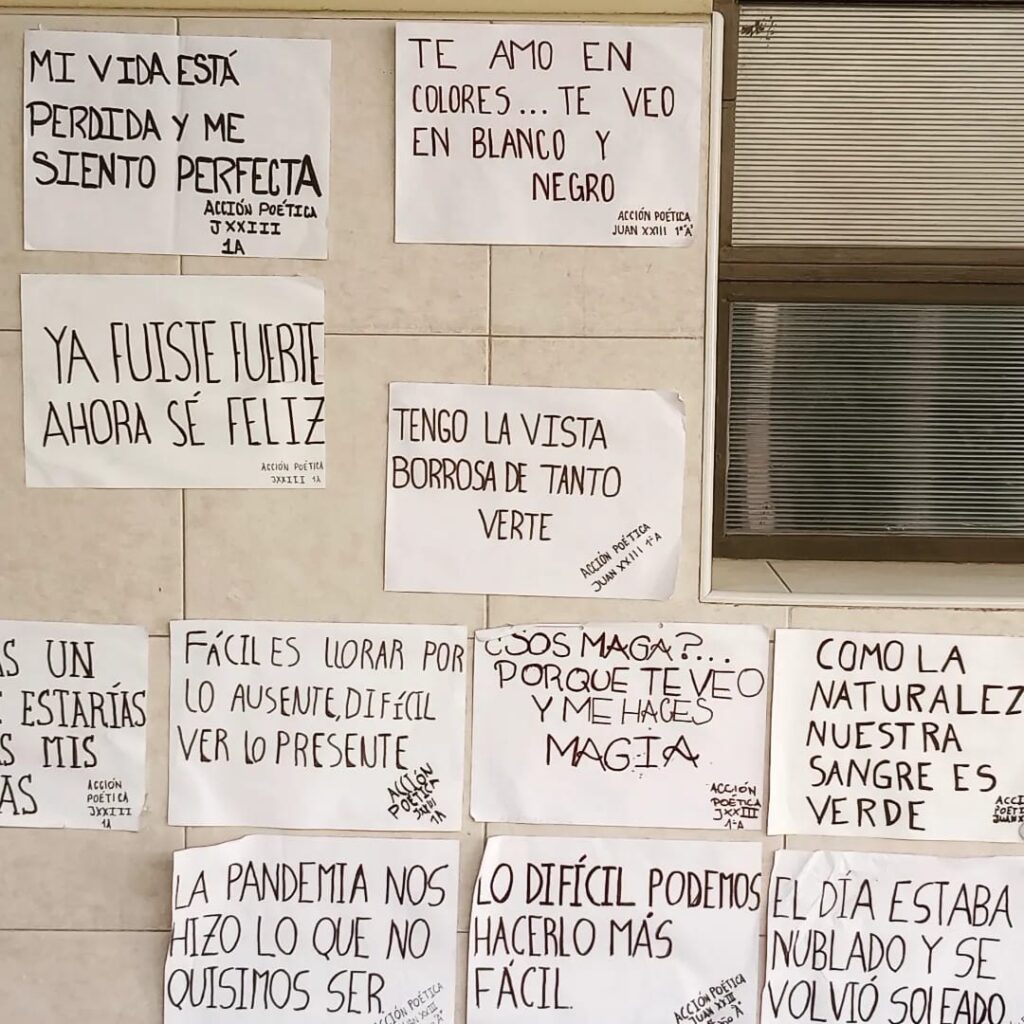 MI VIDA ESTÁ
PERDIDA Y ME
SIENTO PERFECTA
ACCIÓN POÉTICA
JXXIII
1A
TE AMO EN
COLORES... TE VEO
EN BLANCO Y
NEGRO
ACCIÓN POÉTICA
JUAN XXIII 1º"A"
YA FUISTE FUERTE
AHORA SÉ FELIZ
ACCIÓN POÉTICA
JXXIII 1A
TENGO LA VISTA
BORROSA DE TANTO
VERTE
ACCIÓN POÉTICA
JUAN XXIII 1ºA
UN
ESTARÍAS
MIS
ACCIÓN
POÉTICA
JXXIII
1A
FÁCIL ES LLORAR POR
LO AUSENTE, DIFÍCIL
VER LO PRESENTE
ACCIÓN
POÉTICA
1A
¿SOS MAGA?...
PORQUE TE VEO
Y ME HACES
MAGIA
ACCIÓN
POÉTICA
JXXIII
1ºA
COMO LA
NATURALEZ
NUESTRA
SANGRE ES
VERDE
LA PANDEMIA NOS
HIZO LO QUE NO
QUISIMOS SER.
ACCIÓN POÉTICA
LO DIFÍCIL PODEMOS
HACERLO MÁS
FÁCIL.
ACCIÓN POÉTICA
JUAN XXIII
EL DÍA ESTABA
NUBLADO Y SE
VOLVIÓ SOLEADO...